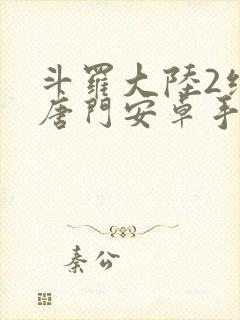 斗羅大陸2
唐門安卓手
秦公